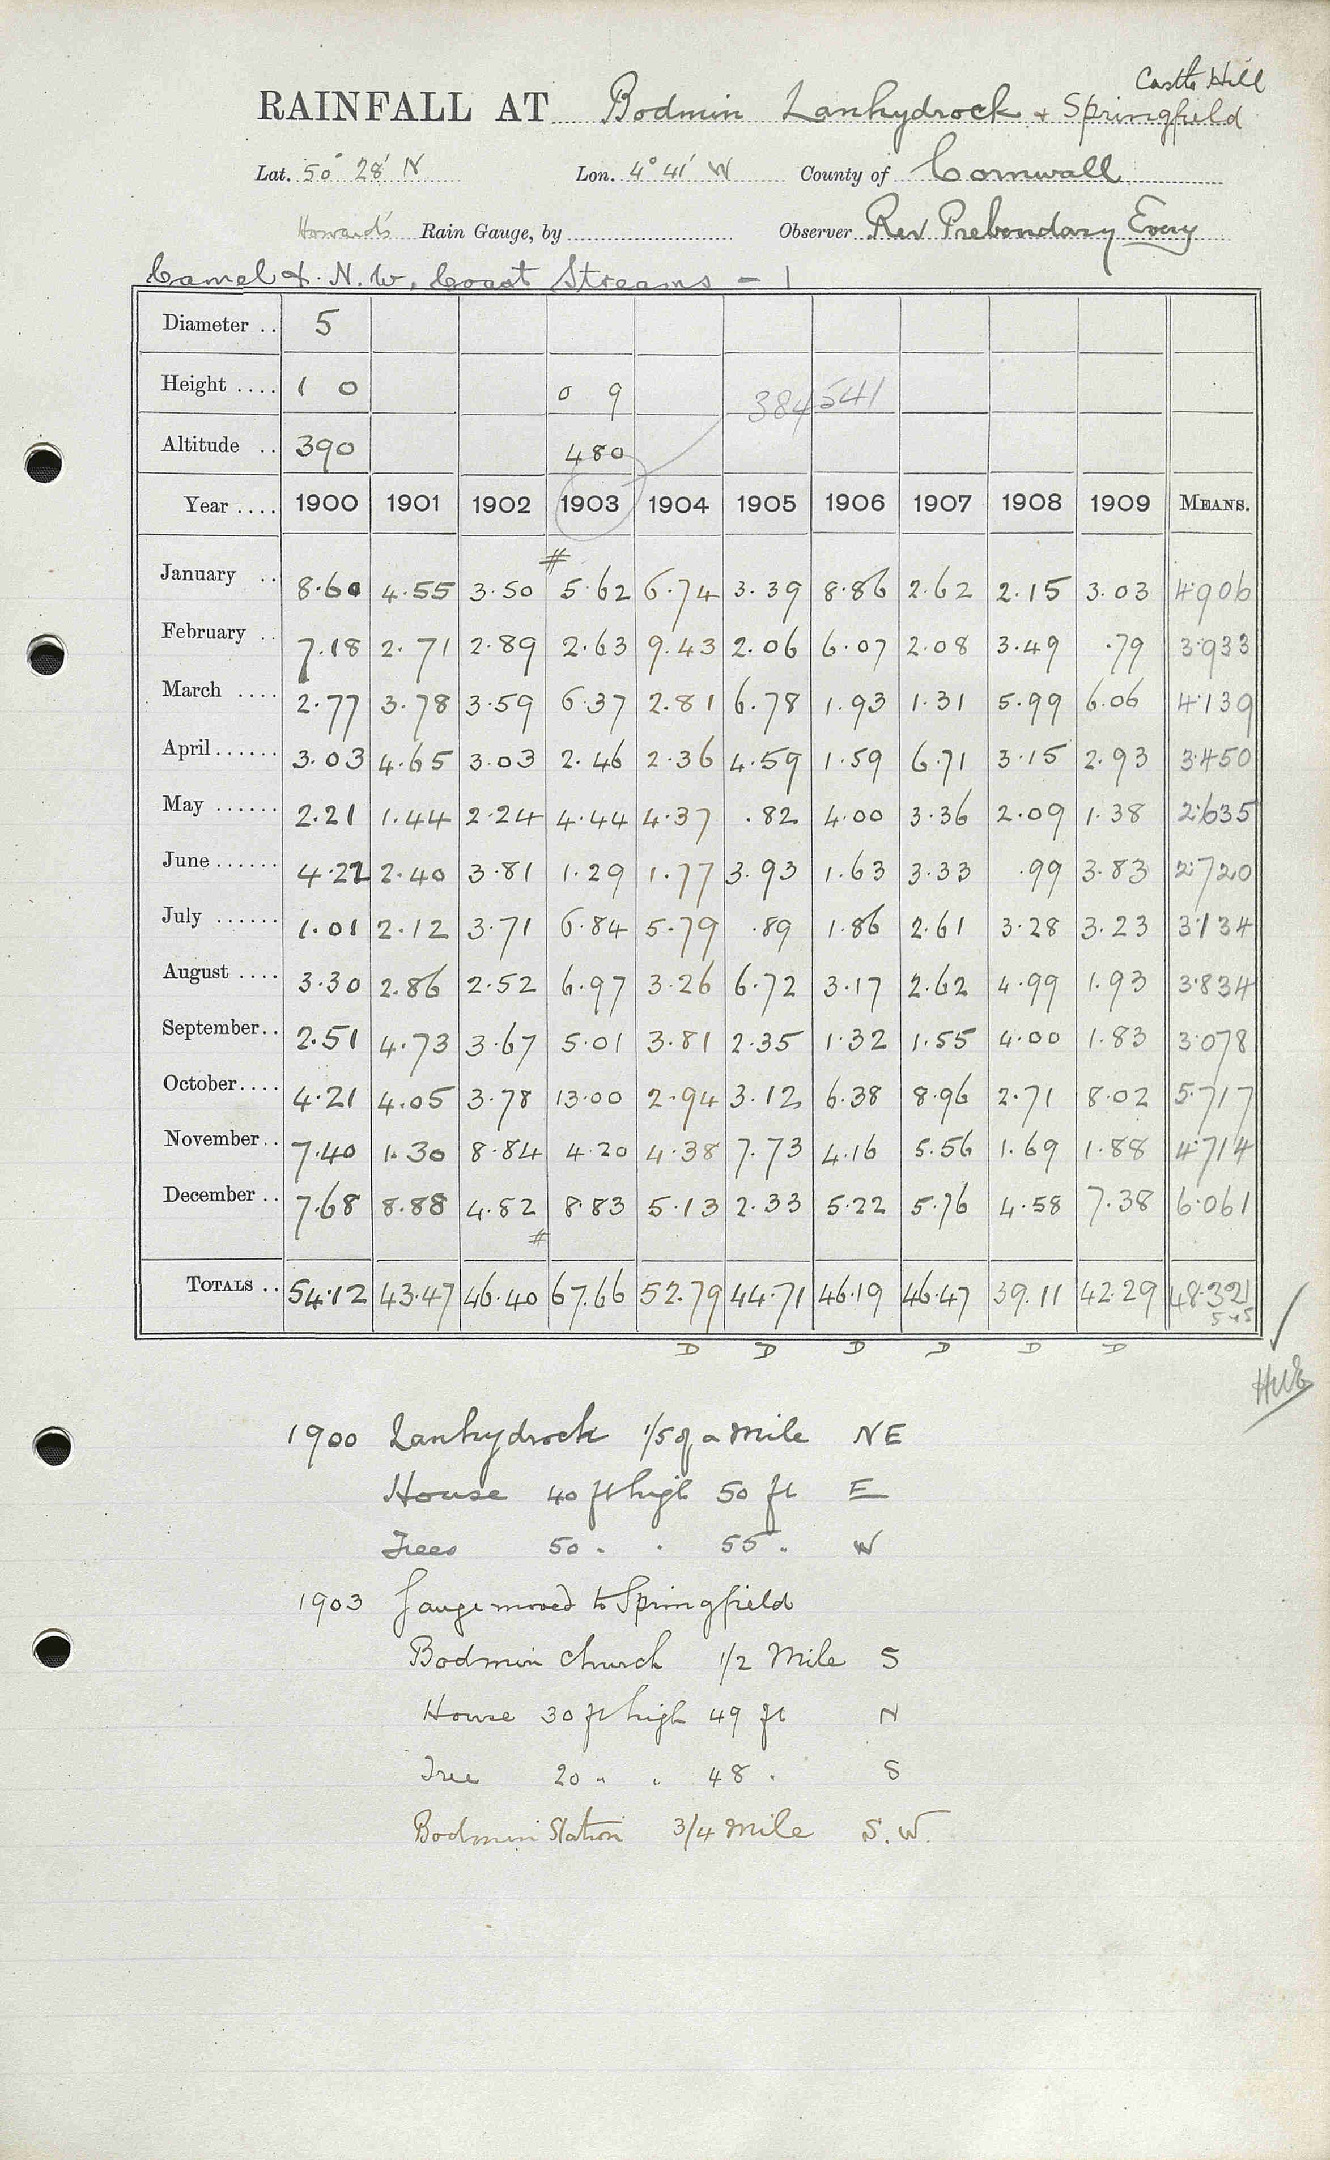 Castle Hill
RAINFALL AT Bodmin Lanhydrock & Springfield
Lat. 50° 28' N Lon. 4° 41' W County of Cornwall
Howard's Rain Gauge, by Observer Rev Prebendary Every
Camel & N.W. Coast Streams - 1
Diameter .. 5
Height .... 1 0 0 9 384541
Altitude .. 390 480
Year .... 1900 1901 1902 1903 1904 1905 1906 1907 1908 1909 MEANS.
#
January .. 8.60 4.55 3.50 5.62 6.74 3.39 8.86 2.62 2.15 3.03 4.906
February .. 7.18 2.71 2.89 2.63 9.43 2.06 6.07 2.08 3.49 .79 3.933
March .... 2.77 3.78 3.59 6.37 2.81 6.78 1.93 1.31 5.99 6.06 4.139
April ...... 3.03 4.65 3.03 2.46 2.36 4.59 1.59 6.71 3.15 2.93 3.450
May ...... 2.21 1.44 2.24 4.44 4.37 .82 4.00 3.36 2.09 1.38 2.635
June ...... 4.22 2.40 3.81 1.29 1.77 3.93 1.63 3.33 .99 3.83 2.720
July ...... 1.01 2.12 3.71 6.84 5.79 .89 1.86 2.61 3.28 3.23 3.134
August .... 3.30 2.86 2.52 6.97 3.26 6.72 3.17 2.62 4.99 1.93 3.834
September .. 2.51 4.73 3.67 5.01 3.81 2.35 1.32 1.55 4.00 1.83 3.078
October .... 4.21 4.05 3.78 13.00 2.94 3.12 6.38 8.96 2.71 8.02 5.717
November .. 7.40 1.30 8.84 4.20 4.38 7.73 4.16 5.56 1.69 1.88 4.714
December .. 7.68 8.88 4.82 8.83 5.13 2.33 5.22 5.76 4.58 7.38 6.061
#
TOTALS .. 54.12 43.47 46.40 67.66 52.79 44.71 46.19 46.47 39.11 42.29 48.321
D D D D D D
1900 Lanhydrock 1/5 of a Mile NE
House 40 ft high 50 ft E
Trees 50 " " 55 " W
1903 Gauge moved to Springfield
Bodmin Church 1/2 Mile S
House 30 ft high 49 ft N
Tree 20 " " 48 " S
Bodmin Station 3/4 Mile S.W.